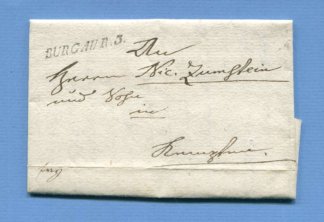 BURGAU R.3.
An
Herrn Nic. Zumstein
und Sohn
in